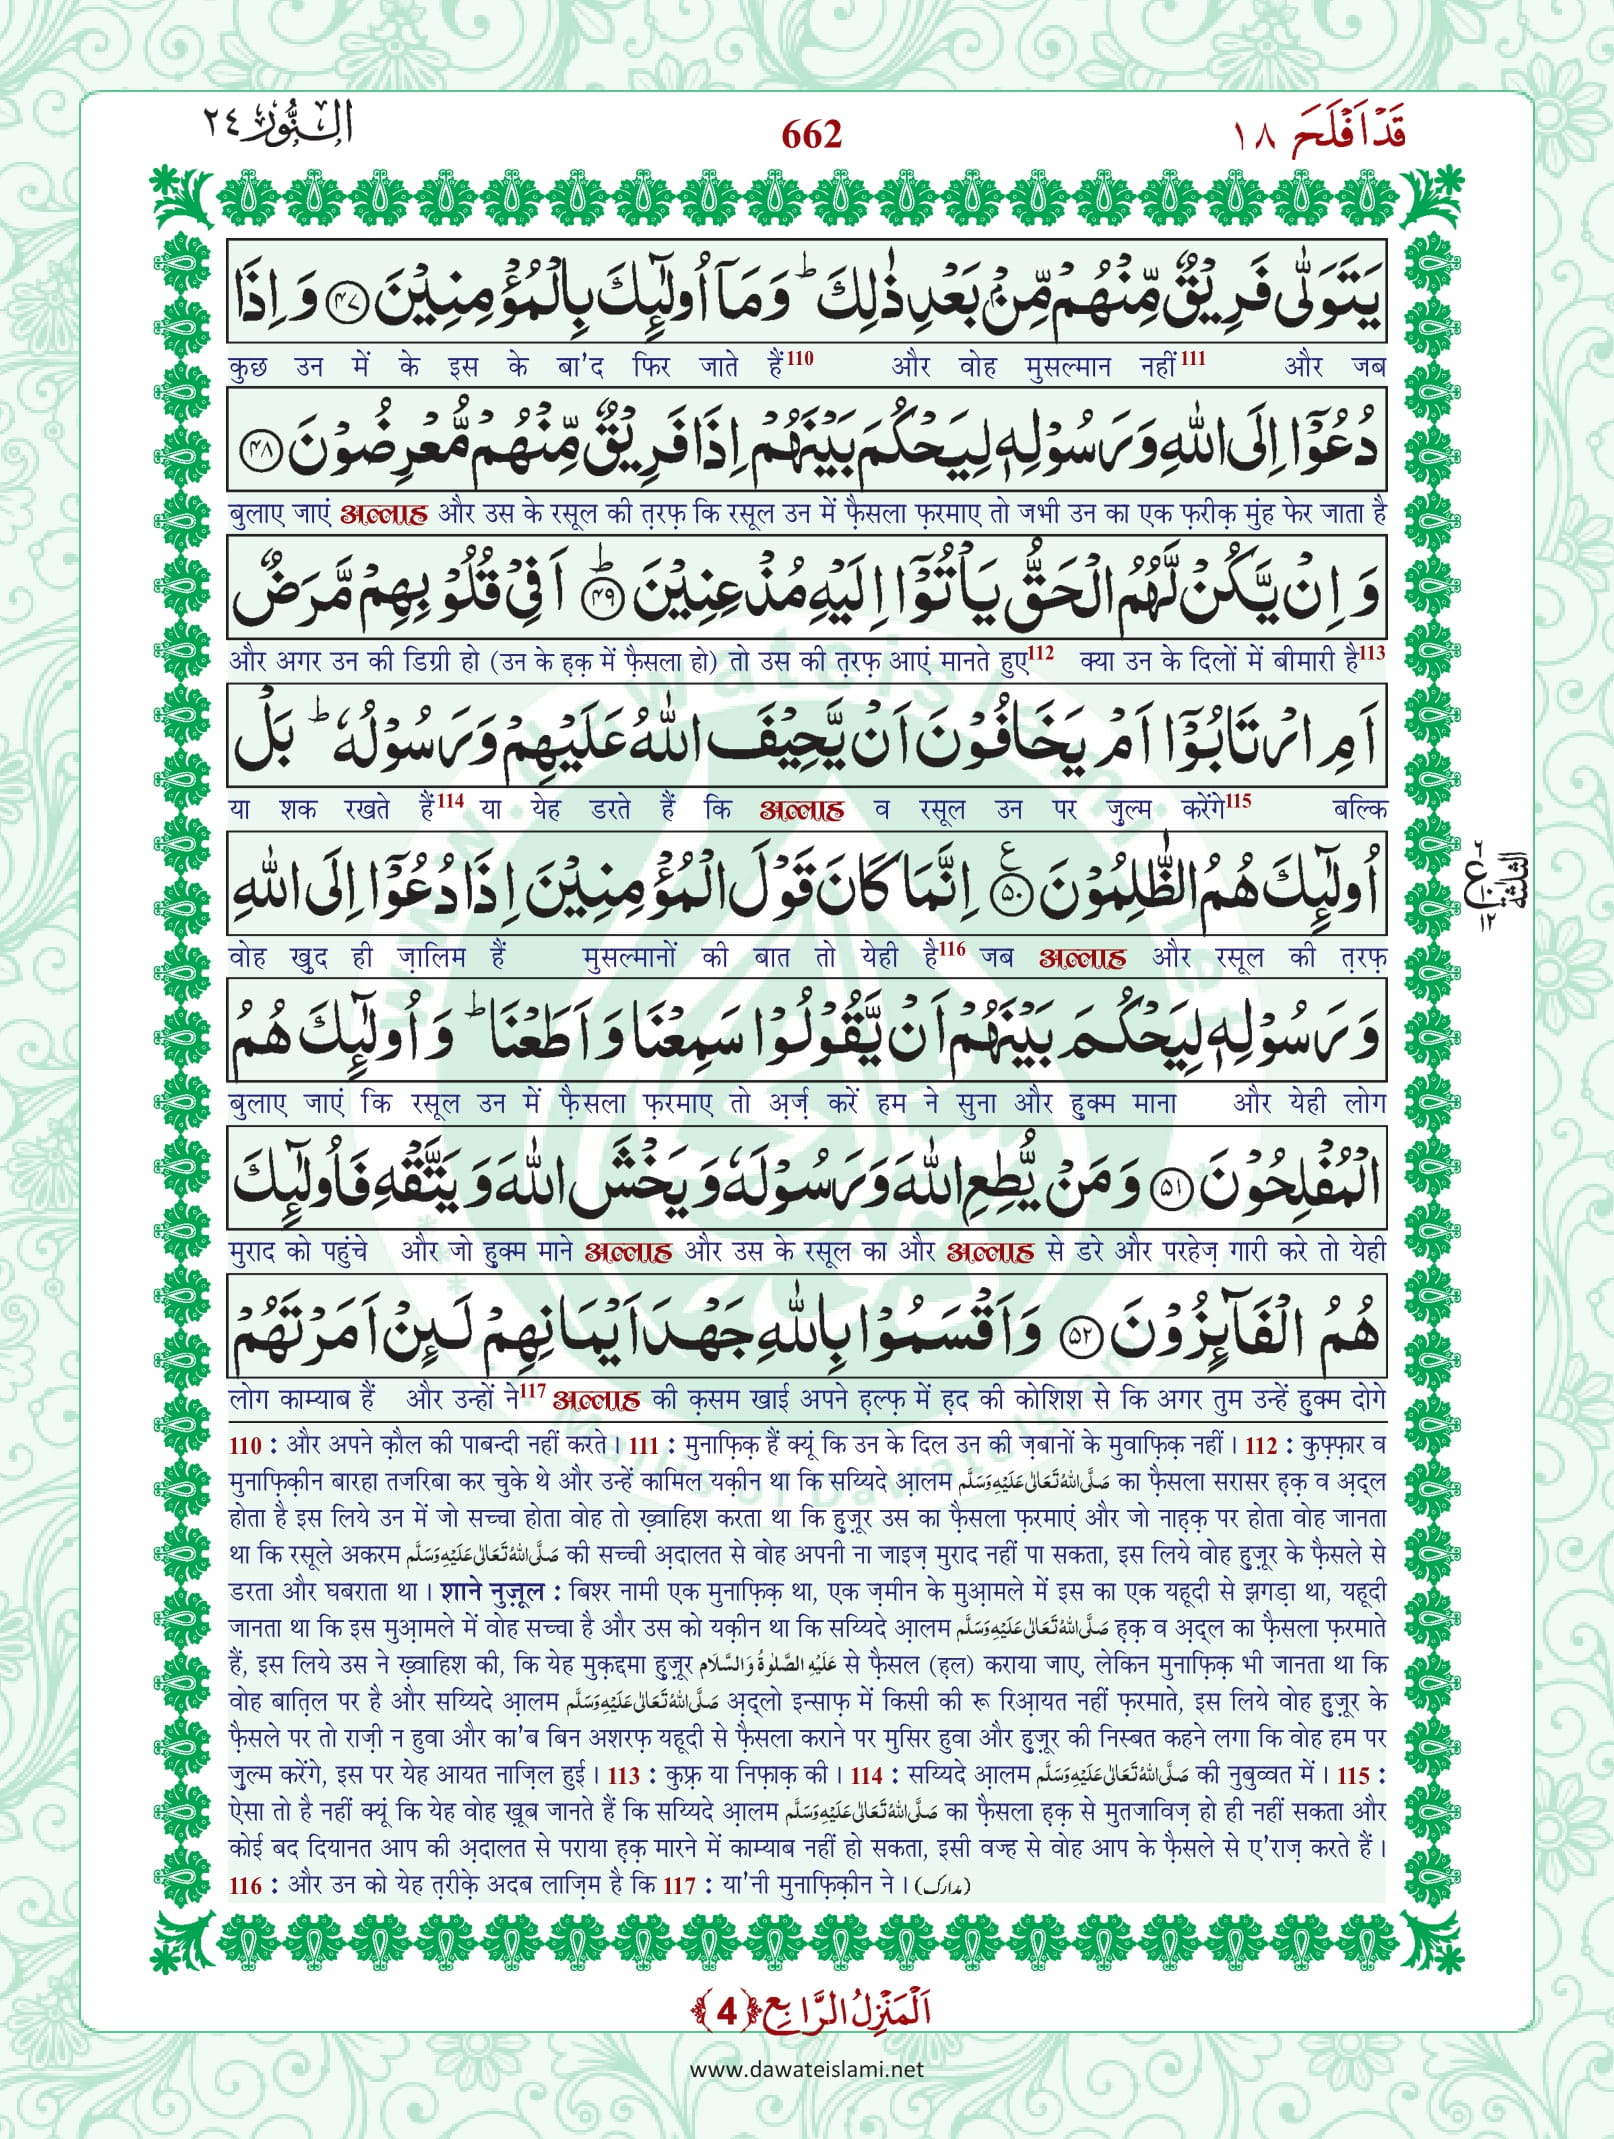 النور ٢٤
662
قَدْ اَفْلَحَ ١٨
يَتَوَلّٰى فَرِيْقٌ مِّنْهُمْ مِّنْۢ بَعْدِ ذٰلِكَ ؕ وَ مَاۤ اُولٰٓىٕكَ بِالْمُؤْمِنِيْنَ ﴿۴۷﴾ وَ اِذَا
कुछ उन में के इस के बा'द फिर जाते हैं110 और वोह मुसल्मान नहीं111 और जब
دُعُوْۤا اِلَى اللّٰهِ وَ رَسُوْلِهٖ لِيَحْكُمَ بَيْنَهُمْ اِذَا فَرِيْقٌ مِّنْهُمْ مُّعْرِضُوْنَ ﴿۴۸﴾
बुलाए जाएं अल्लाह और उस के रसूल की त़रफ़ कि रसूल उन में फै़सला फ़रमाए तो जभी उन का एक फ़रीक़ मुंह फेर जाता है
وَ اِنْ يَّكُنْ لَّهُمُ الْحَقُّ يَاْتُوْۤا اِلَيْهِ مُذْعِنِيْنَ ؕ﴿۴۹﴾ اَفِيْ قُلُوْبِهِمْ مَّرَضٌ
और अगर उन की डिग्री हो (उन के ह़क़ में फै़सला हो) तो उस की त़रफ़ आएं मानते हुए112 क्या उन के दिलों में बीमारी है113
اَمِ ارْتَابُوْۤا اَمْ يَخَافُوْنَ اَنْ يَّحِيْفَ اللّٰهُ عَلَيْهِمْ وَ رَسُوْلُهٗ ؕ بَلْ
या शक रखते हैं114 या येह डरते हैं कि अल्लाह व रसूल उन पर ज़ुल्म करेंगे115 बल्कि
اُولٰٓىٕكَ هُمُ الظّٰلِمُوْنَ ﴿۵۰﴾ اِنَّمَا كَانَ قَوْلَ الْمُؤْمِنِيْنَ اِذَا دُعُوْۤا اِلَى اللّٰهِ
वोह ख़ुद ही ज़ालिम हैं मुसल्मानों की बात तो येही है116 जब अल्लाह और रसूल की त़रफ़
وَ رَسُوْلِهٖ لِيَحْكُمَ بَيْنَهُمْ اَنْ يَّقُوْلُوْا سَمِعْنَا وَ اَطَعْنَا ؕ وَ اُولٰٓىٕكَ هُمُ
बुलाए जाएं कि रसूल उन में फै़सला फ़रमाए तो अ़र्ज़ करें हम ने सुना और हुक्म माना और येही लोग
الْمُفْلِحُوْنَ ﴿۵۱﴾ وَ مَنْ يُّطِعِ اللّٰهَ وَ رَسُوْلَهٗ وَ يَخْشَ اللّٰهَ وَ يَتَّقْهِ فَاُولٰٓىٕكَ
मुराद को पहुंचे और जो हुक्म माने अल्लाह और उस के रसूल का और अल्लाह से डरे और परहेज़ गारी करे तो येही
هُمُ الْفَآىٕزُوْنَ ﴿۵۲﴾ وَ اَقْسَمُوْا بِاللّٰهِ جَهْدَ اَيْمَانِهِمْ لَىِٕنْ اَمَرْتَهُمْ
लोग काम्याब हैं और उन्हों ने117 अल्लाह की क़सम खाई अपने ह़ल्फ़ में ह़द की कोशिश से कि अगर तुम उन्हें हुक्म दोगे
110 : और अपने क़ौल की पाबन्दी नहीं करते। 111 : मुनाफ़िक़ हैं क्यूं कि उन के दिल उन की ज़बानों के मुवाफ़िक़ नहीं। 112 : कुफ़्फ़ार व
मुनाफ़िक़ीन बारहा तजरिबा कर चुके थे और उन्हें कामिल यक़ीन था कि सय्यिदे आ़लम صَلَّى اللهُ تَعَالٰى عَلَيْهِ وَسَلَّم का फै़सला सरासर ह़क़ व अ़द्ल
होता है इस लिये उन में जो सच्चा होता वोह तो ख़्वाहिश करता था कि हुज़ूर उस का फै़सला फ़रमाएं और जो नाह़क़ पर होता वोह जानता
था कि रसूले अकरम صَلَّى اللهُ تَعَالٰى عَلَيْهِ وَسَلَّم की सच्ची अ़दालत से वोह अपनी ना जाइज़ मुराद नहीं पा सकता, इस लिये वोह हुज़ूर के फै़सले से
डरता और घबराता था। शाने नुज़ूल : बिश्र नामी एक मुनाफ़िक़ था, एक ज़मीन के मुआ़मले में इस का एक यहूदी से झगड़ा था, यहूदी
जानता था कि इस मुआ़मले में वोह सच्चा है और उस को यक़ीन था कि सय्यिदे आ़लम صَلَّى اللهُ تَعَالٰى عَلَيْهِ وَسَلَّم ह़क़ व अ़द्ल का फै़सला फ़रमाते
हैं, इस लिये उस ने ख़्वाहिश की, कि येह मुक़द्दमा हुज़ूर عَلَيْهِ الصَّلٰوةُ وَالسَّلَام से फै़सल (ह़ल) कराया जाए, लेकिन मुनाफ़िक़ भी जानता था कि
वोह बात़िल पर है और सय्यिदे आ़लम صَلَّى اللهُ تَعَالٰى عَلَيْهِ وَسَلَّم अ़द्लो इन्साफ़ में किसी की रू रिआ़यत नहीं फ़रमाते, इस लिये वोह हुज़ूर के
फै़सले पर तो राज़ी न हुवा और का'ब बिन अशरफ़ यहूदी से फै़सला कराने पर मुसिर हुवा और हुज़ूर की निस्बत कहने लगा कि वोह हम पर
ज़ुल्म करेंगे, इस पर येह आयत नाज़िल हुई। 113 : कुफ़्र या निफ़ाक़ की। 114 : सय्यिदे आ़लम صَلَّى اللهُ تَعَالٰى عَلَيْهِ وَسَلَّم की नुबुव्वत में। 115 :
ऐसा तो है नहीं क्यूं कि येह वोह ख़ूब जानते हैं कि सय्यिदे आ़लम صَلَّى اللهُ تَعَالٰى عَلَيْهِ وَسَلَّم का फै़सला ह़क़ से मुतजाविज़ हो ही नहीं सकता और
कोई बद दियानत आप की अ़दालत से पराया ह़क़ मारने में काम्याब नहीं हो सकता, इसी वज्ह से वोह आप के फै़सले से ए'राज़ करते हैं।
116 : और उन को येह त़रीक़े अदब लाज़िम है कि 117 : या'नी मुनाफ़िक़ीन ने। (مدارک)
الثلثة
ع
٦
١٠
١٢
اَلْمَنْزِلُ الرَّابِع ﴿4﴾
www.dawateislami.net